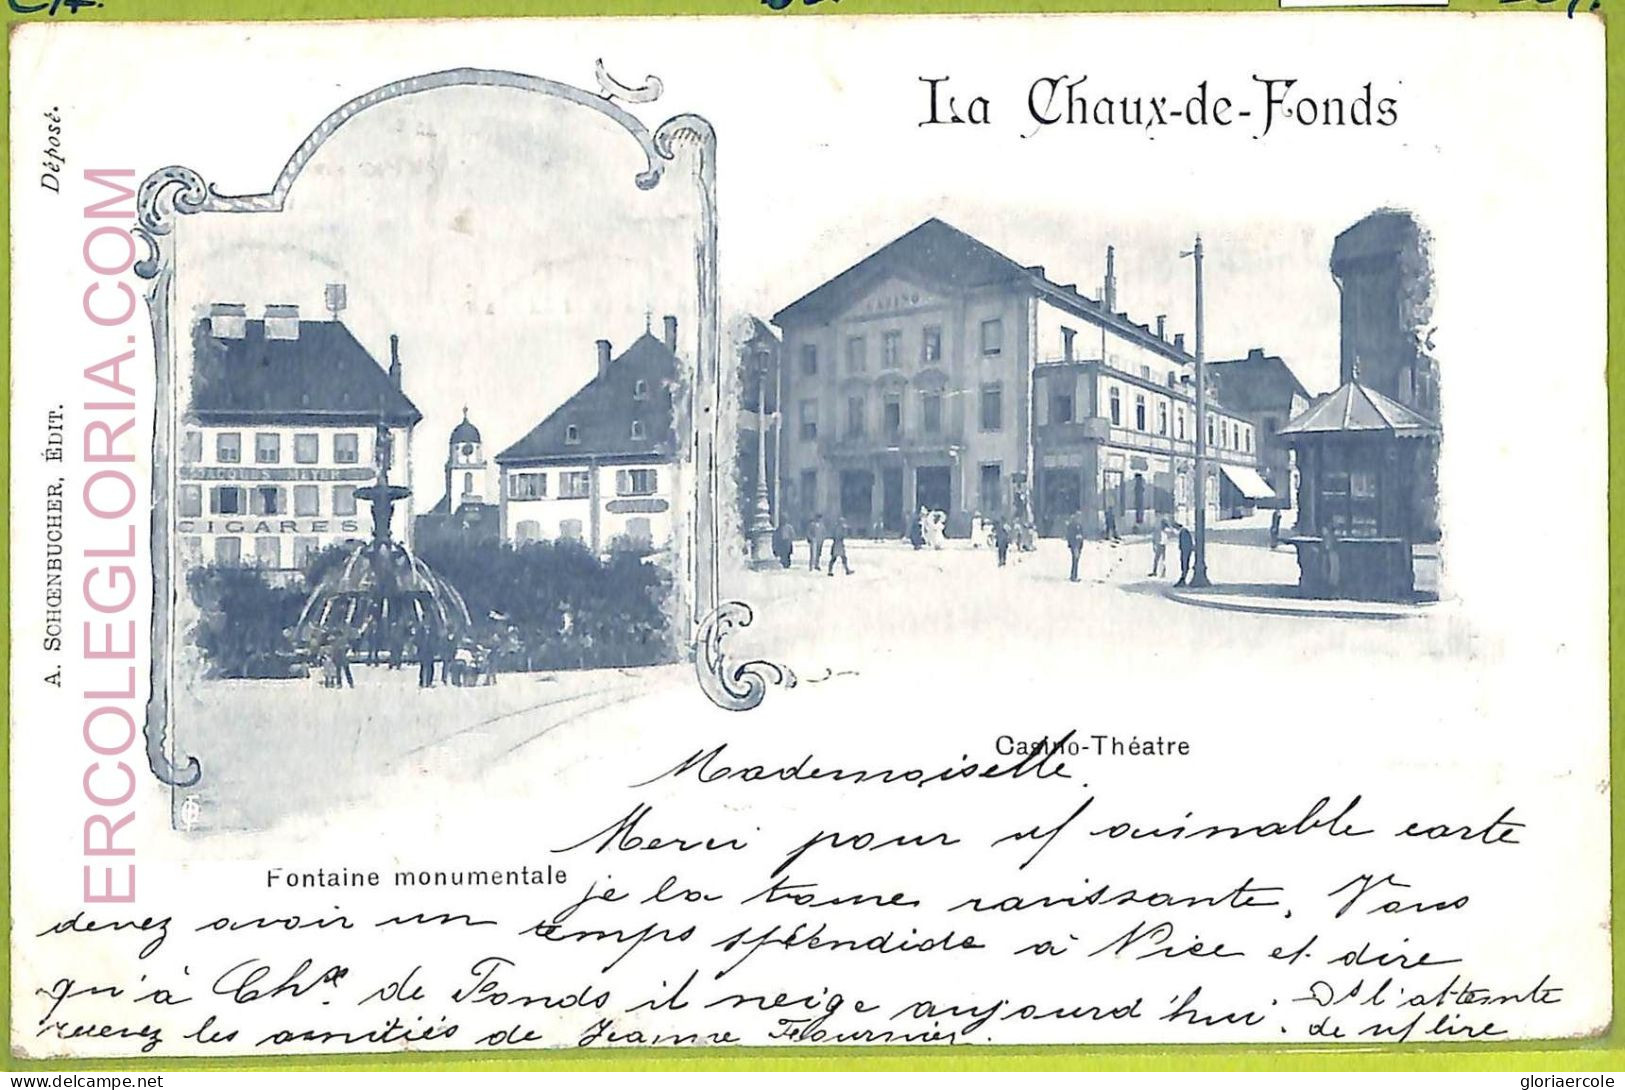 La Chaux-de-Fonds
Déposé.
A. SCHŒNBUCHER, ÉDIT.
ERCOLEGLORIA.COM
CASINO
CIGARES
Casino-Théatre
Fontaine monumentale
Mademoiselle.
Merci pour vf aimable carte
je la trouve ravissante. Vous
devez avoir un temps spléndide à Nice et dire
qu'à Chx de Fonds il neige aujourd'hui. Ds l'attente
de vf lire
recevez les amitiés de Jeanne Fournier.
delcampe.net
gloriaercole